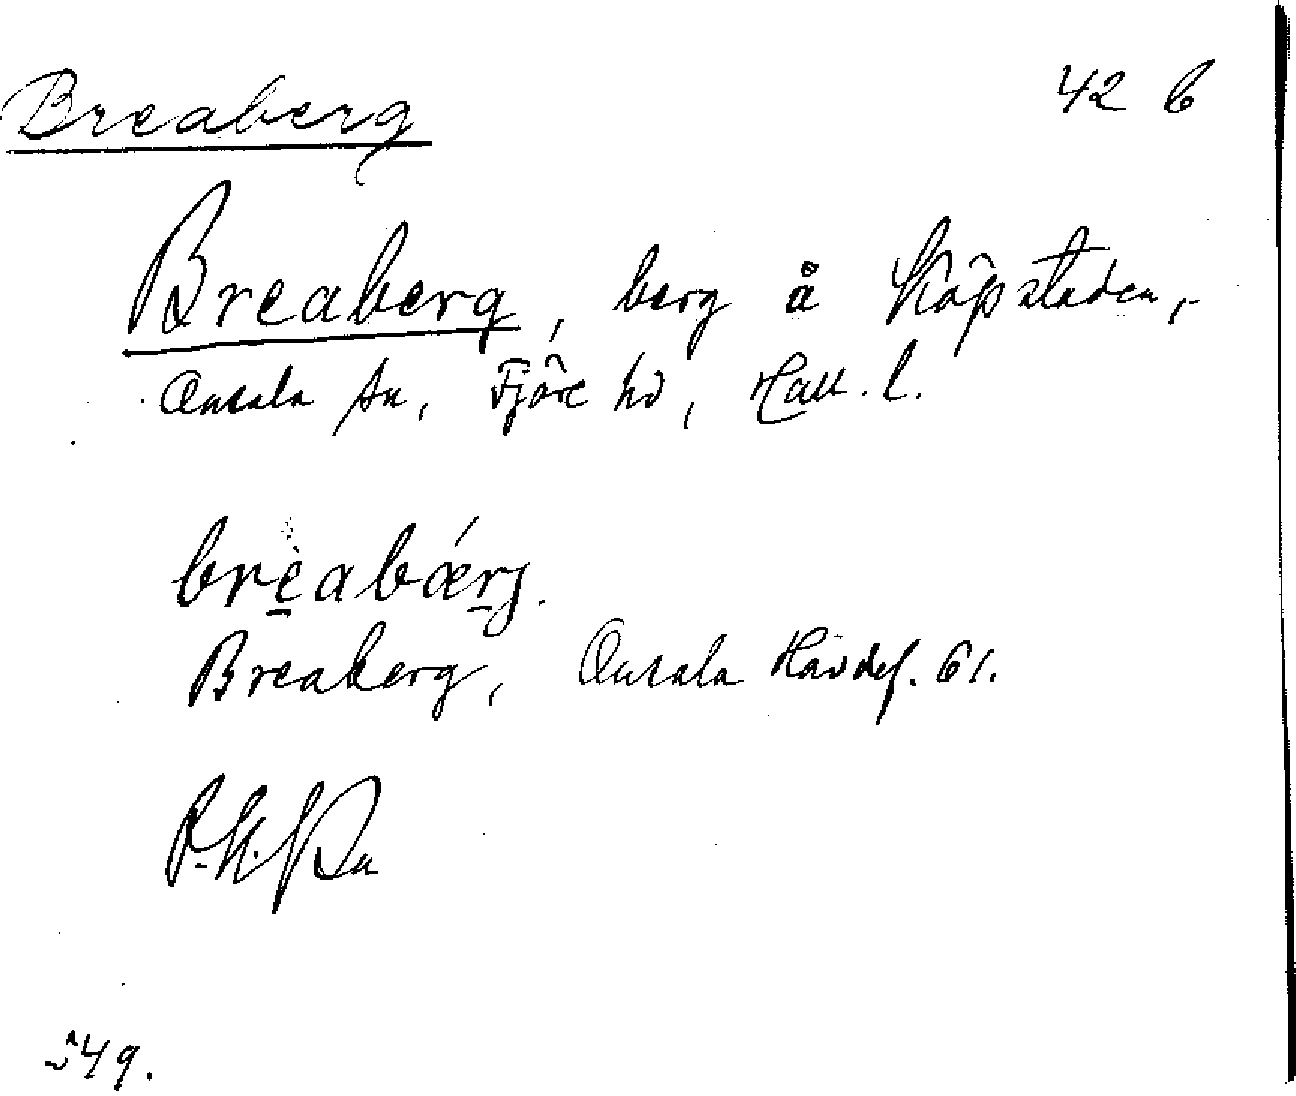 Breaberg 42 b
Breaberg, berg å Köpstaden,
Onsala sn, Fjäre hd, Hall. l.
brèabǽrj.
Breaberg, Onsala Hävdef. 61.
549.